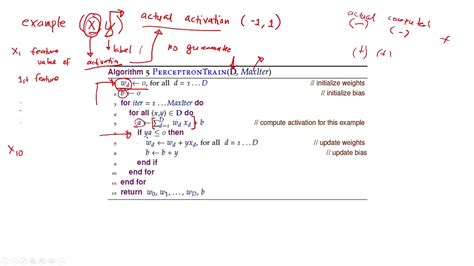 example (X, y) actual activation (-1, 1)
actual computed
(-) (-)
(+) (+)
x₁ feature value of activation
label
no guarantee
1st feature
x10
Algorithm 5 PERCEPTRONTRAIN(D, MaxIter)
1: w_d ← 0, for all d = 1 … D // initialize weights
2: b ← 0 // initialize bias
3: for iter = 1 … MaxIter do
4: for all (x,y) ∈ D do
5: a ← ∑_{d=1}^{D} w_d x_d + b // compute activation for this example
6: if ya ≤ 0 then
7: w_d ← w_d + yx_d, for all d = 1 … D // update weights
8: b ← b + y // update bias
9: end if
10: end for
11: end for
12: return w₀, w₁, …, w_D, b